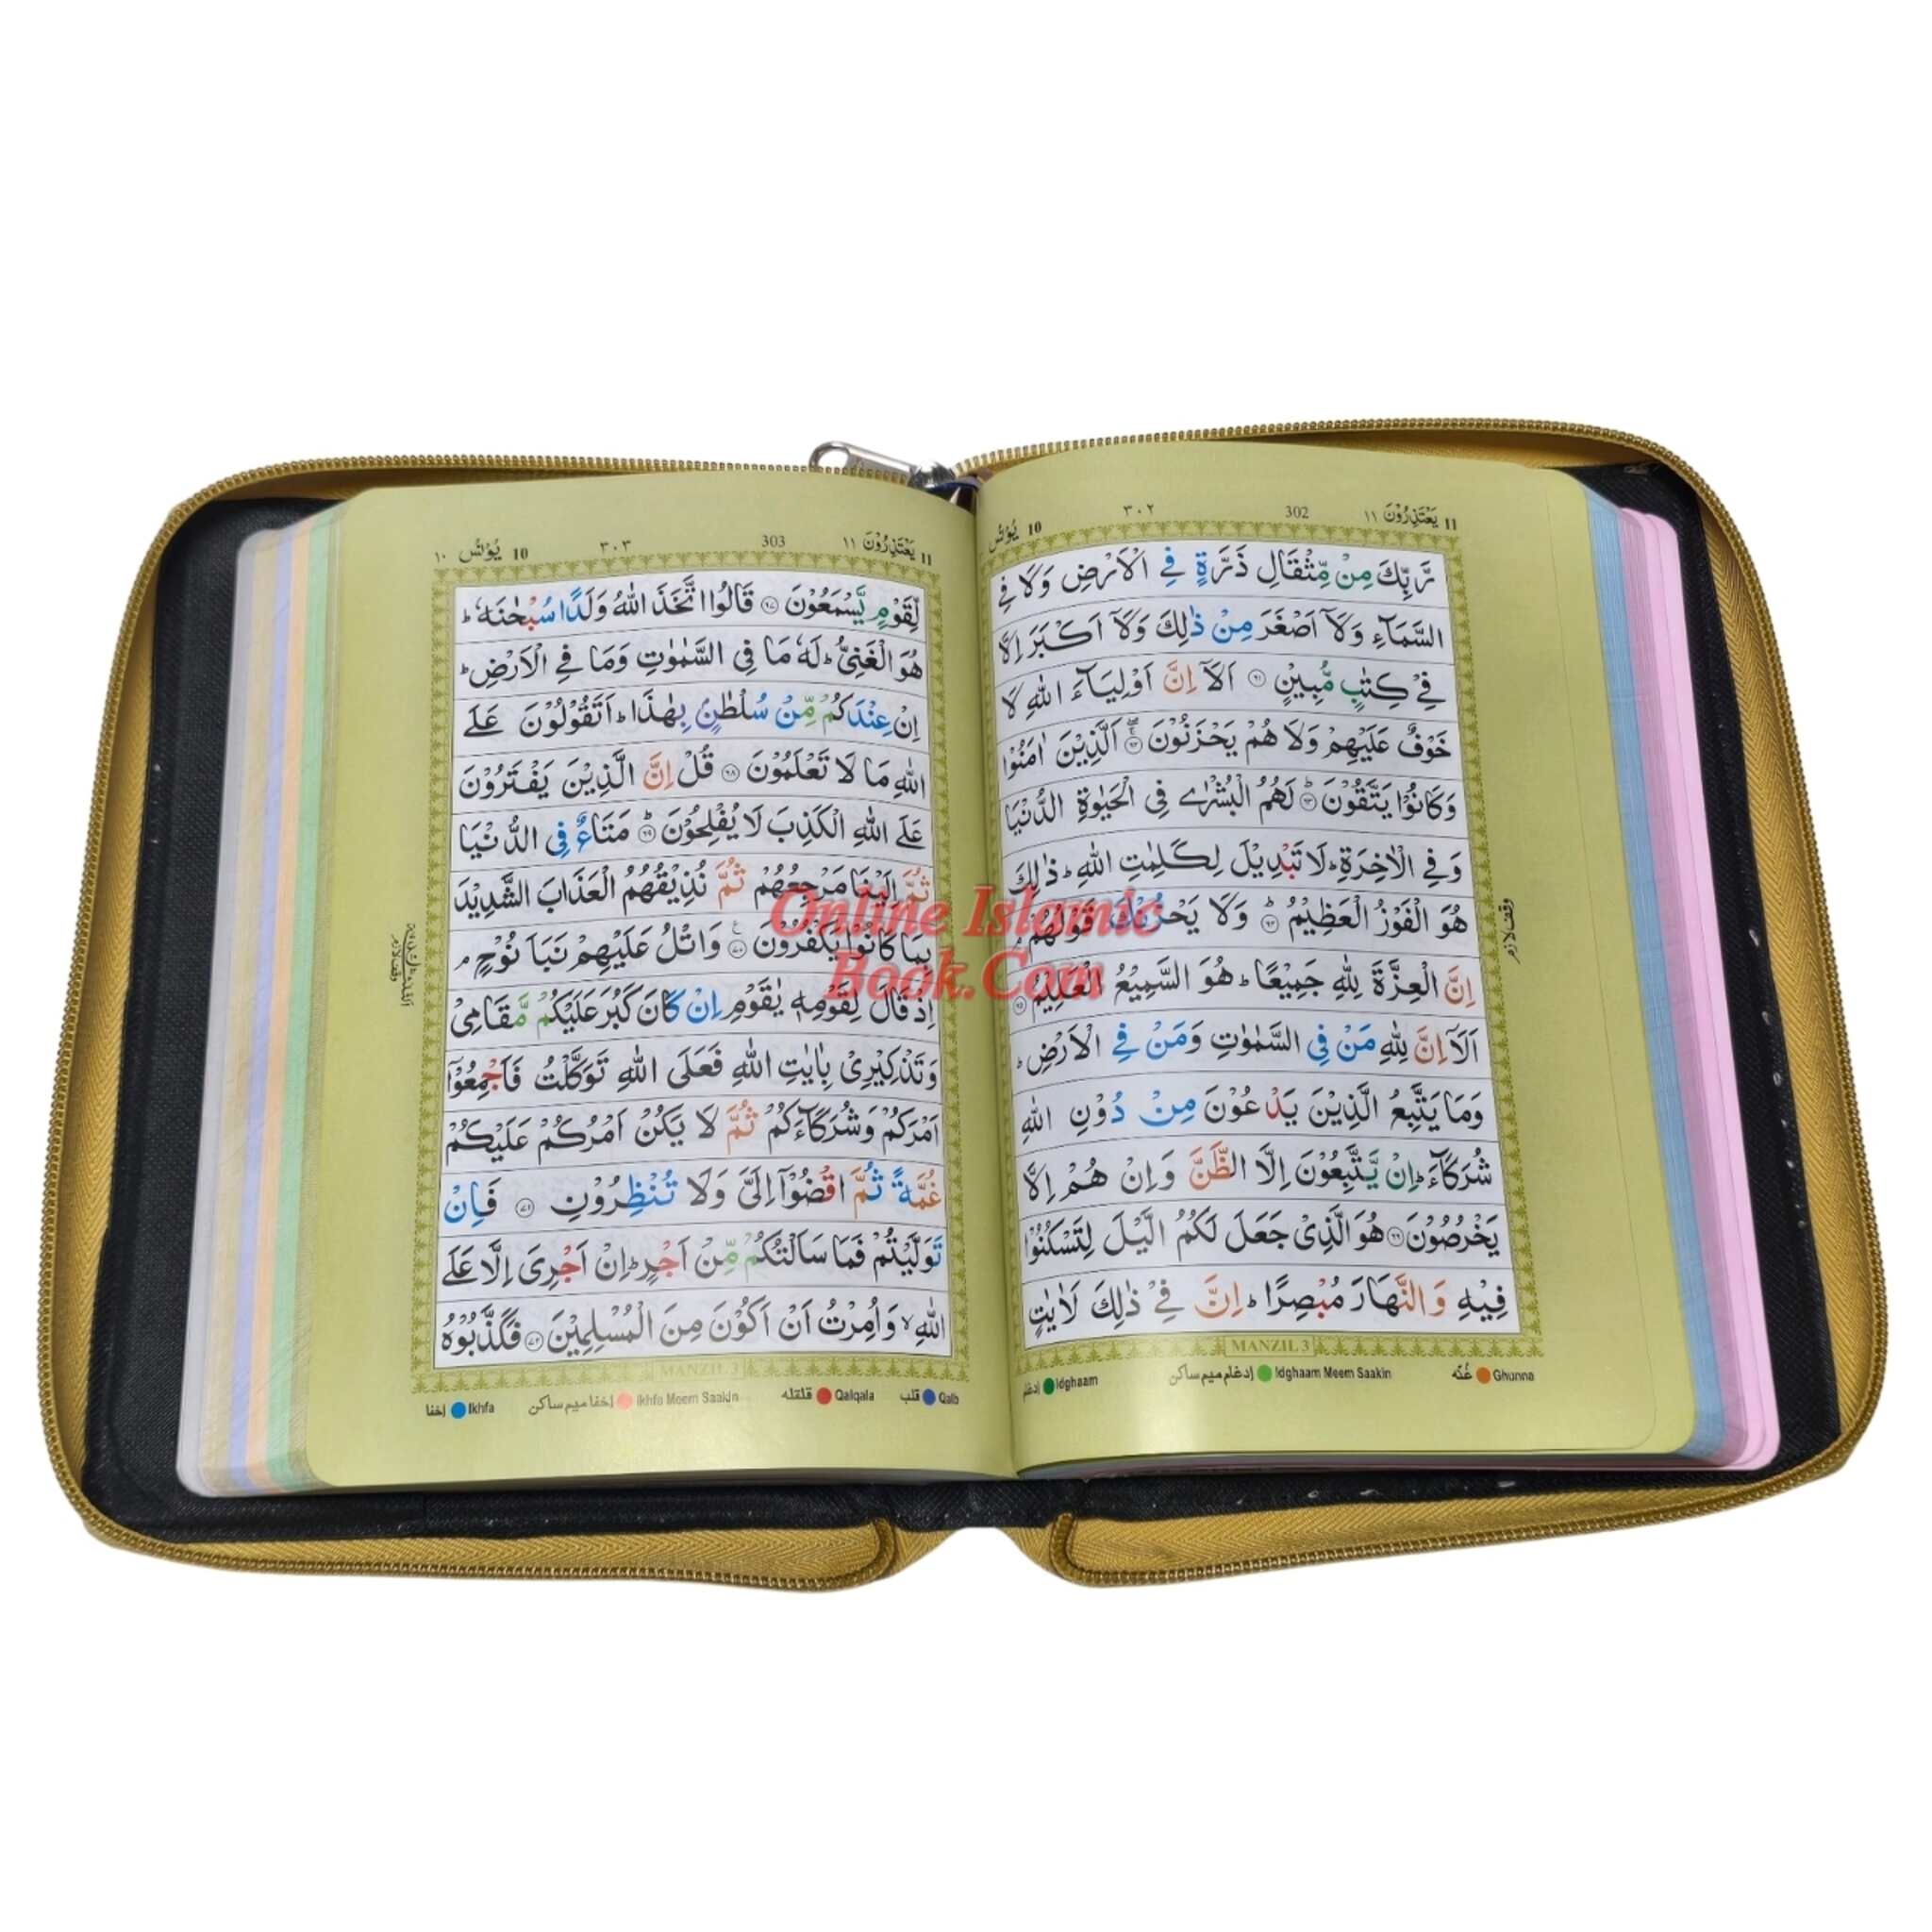 11 يَعْتَذِرُوْنَ ١١ 302 ٣٠٢ 10 يُوْنُسُ
رَّبِّكَ مِنْ مِّثْقَالِ ذَرَّةٍ فِي الْاَرْضِ وَلَا فِي
السَّمَآءِ وَلَآ اَصْغَرَ مِنْ ذٰلِكَ وَلَآ اَكْبَرَ اِلَّا
فِيْ كِتٰبٍ مُّبِيْنٍ ۝٦١ اَلَآ اِنَّ اَوْلِيَآءَ اللّٰهِ لَا
خَوْفٌ عَلَيْهِمْ وَلَا هُمْ يَحْزَنُوْنَ ۝٦٢ الَّذِيْنَ اٰمَنُوْا
وَكَانُوْا يَتَّقُوْنَ ۝٦٣ؕ لَهُمُ الْبُشْرٰى فِي الْحَيٰوةِ الدُّنْيَا
وَفِي الْاٰخِرَةِؕ لَا تَبْدِيْلَ لِكَلِمٰتِ اللّٰهِؕ ذٰلِكَ
هُوَ الْفَوْزُ الْعَظِيْمُ ۝٦٤ؕ وَلَا يَحْزُنْكَ قَوْلُهُمْۘ
اِنَّ الْعِزَّةَ لِلّٰهِ جَمِيْعًاؕ هُوَ السَّمِيْعُ الْعَلِيْمُ ۝٦٥
اَلَآ اِنَّ لِلّٰهِ مَنْ فِي السَّمٰوٰتِ وَمَنْ فِي الْاَرْضِؕ
وَمَا يَتَّبِعُ الَّذِيْنَ يَدْعُوْنَ مِنْ دُوْنِ اللّٰهِ
شُرَكَآءَؕ اِنْ يَّتَّبِعُوْنَ اِلَّا الظَّنَّ وَاِنْ هُمْ اِلَّا
يَخْرُصُوْنَ ۝٦٦ هُوَ الَّذِيْ جَعَلَ لَكُمُ الَّيْلَ لِتَسْكُنُوْا
فِيْهِ وَالنَّهَارَ مُبْصِرًاؕ اِنَّ فِيْ ذٰلِكَ لَاٰيٰتٍ
وقف لازم
MANZIL 3
إدغام Idghaam إدغام ميم ساكن Idghaam Meem Saakin غُنّه Ghunna
11 يَعْتَذِرُوْنَ ١١ 303 ٣٠٣ 10 يُوْنُسُ ١٠
لِّقَوْمٍ يَّسْمَعُوْنَ ۝٦٧ قَالُوا اتَّخَذَ اللّٰهُ وَلَدًا سُبْحٰنَهٗؕ
هُوَ الْغَنِيُّؕ لَهٗ مَا فِي السَّمٰوٰتِ وَمَا فِي الْاَرْضِؕ
اِنْ عِنْدَكُمْ مِّنْ سُلْطٰنٍۭ بِهٰذَاؕ اَتَقُوْلُوْنَ عَلَى
اللّٰهِ مَا لَا تَعْلَمُوْنَ ۝٦٨ قُلْ اِنَّ الَّذِيْنَ يَفْتَرُوْنَ
عَلَى اللّٰهِ الْكَذِبَ لَا يُفْلِحُوْنَ ۝٦٩ؕ مَتَاعٌ فِي الدُّنْيَا
ثُمَّ اِلَيْنَا مَرْجِعُهُمْ ثُمَّ نُذِيْقُهُمُ الْعَذَابَ الشَّدِيْدَ
بِمَا كَانُوْا يَكْفُرُوْنَ ۝٧٠ وَاتْلُ عَلَيْهِمْ نَبَاَ نُوْحٍۘ
اِذْ قَالَ لِقَوْمِهٖ يٰقَوْمِ اِنْ كَانَ كَبُرَ عَلَيْكُمْ مَّقَامِيْ
وَتَذْكِيْرِيْ بِاٰيٰتِ اللّٰهِ فَعَلَى اللّٰهِ تَوَكَّلْتُ فَاَجْمِعُوْٓا
اَمْرَكُمْ وَشُرَكَآءَكُمْ ثُمَّ لَا يَكُنْ اَمْرُكُمْ عَلَيْكُمْ
غُمَّةً ثُمَّ اقْضُوْٓا اِلَيَّ وَلَا تُنْظِرُوْنِ ۝٧١ فَاِنْ
تَوَلَّيْتُمْ فَمَا سَاَلْتُكُمْ مِّنْ اَجْرٍؕ اِنْ اَجْرِيَ اِلَّا عَلَى
اللّٰهِۙ وَاُمِرْتُ اَنْ اَكُوْنَ مِنَ الْمُسْلِمِيْنَ ۝٧٢ فَكَذَّبُوْهُ
وقف لازم
MANZIL 3
إخفا Ikhfa إخفا ميم ساكن Ikhfa Meem Saakin قلقله Qalqala قلب Qalb
Online Islamic
Book.Com